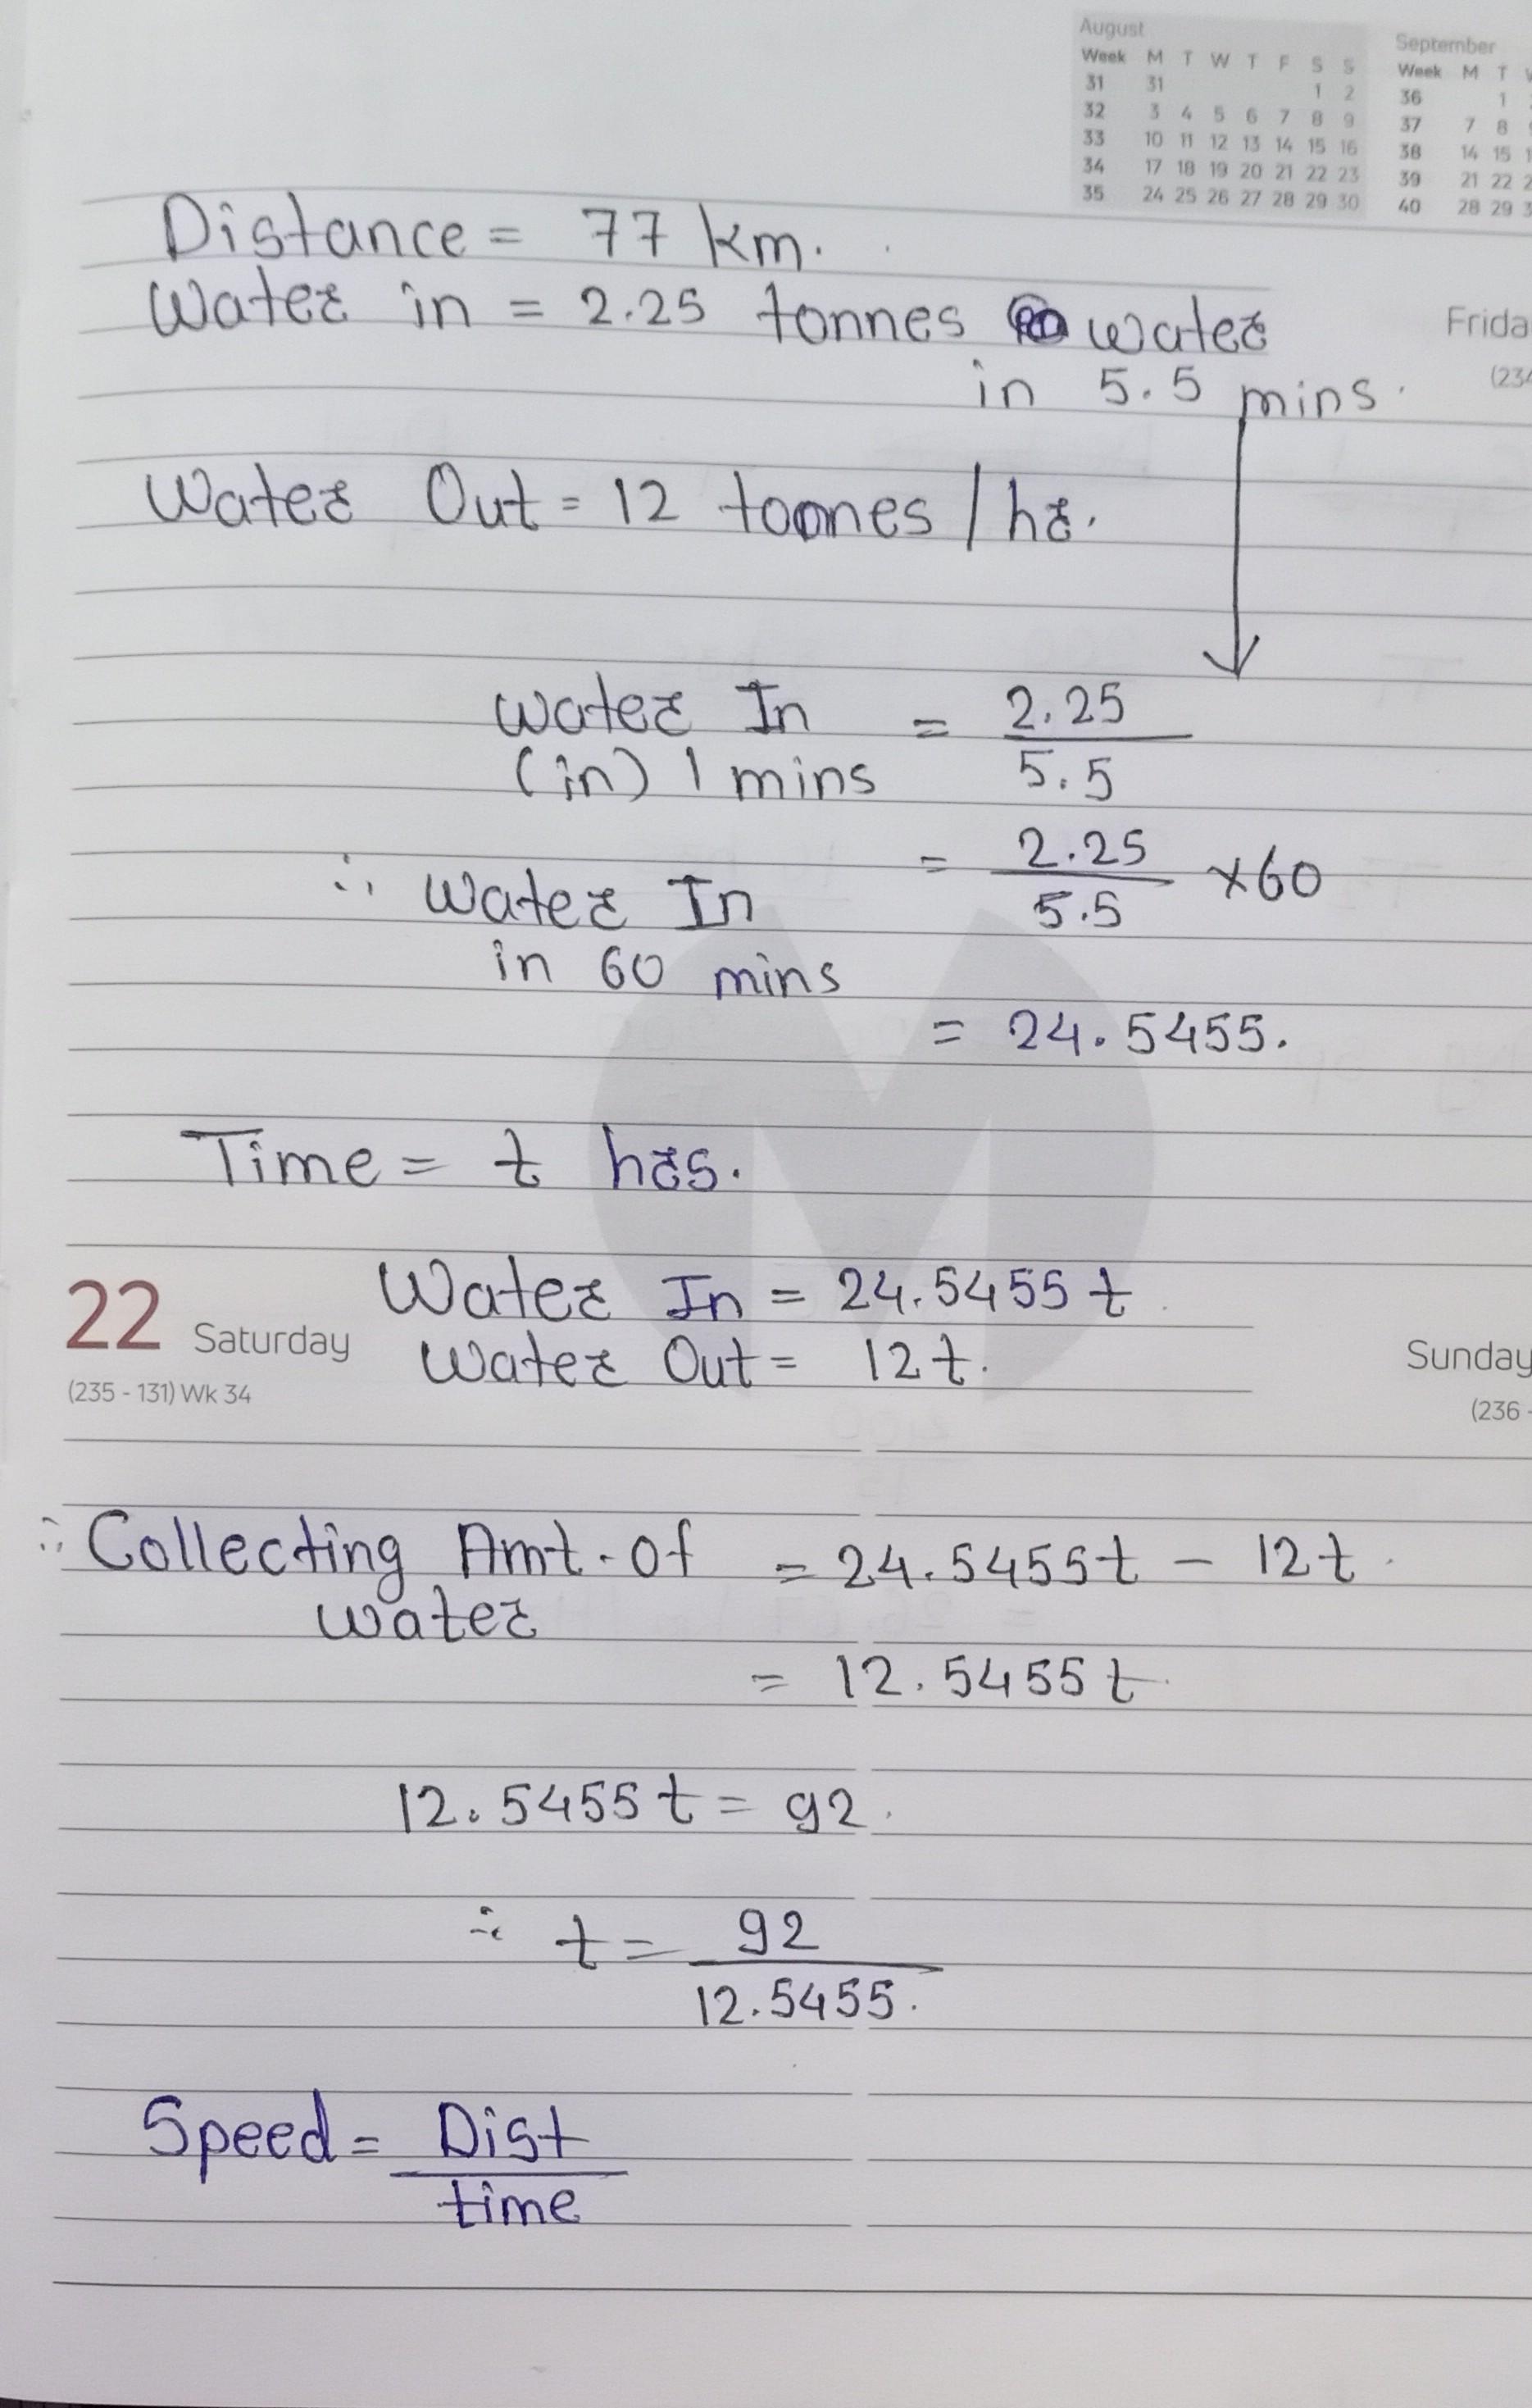 August
Week M T W T F S S
31 31 1 2
32 3 4 5 6 7 8 9
33 10 11 12 13 14 15 16
34 17 18 19 20 21 22 23
35 24 25 26 27 28 29 30
September
Week M T
36 1
37 7 8
38 14 15
39 21 22
40 28 29
Distance = 77 km.
Water in = 2.25 tonnes water
in 5.5 mins.
Frida
(234
Water Out = 12 tonnes / hr.
Water In = 2.25
(in) 1 mins 5.5
∴ Water In = 2.25 × 60
5.5
in 60 mins
= 24.5455.
Time = t hrs.
22 Saturday
(235 - 131) Wk 34
Water In = 24.5455 t
Water Out = 12 t.
Sunday
(236 -
∴ Collecting Amt. of = 24.5455t - 12t.
water
= 12.5455 t
12.5455 t = 92.
∴ t = 92
12.5455.
Speed = Dist
time